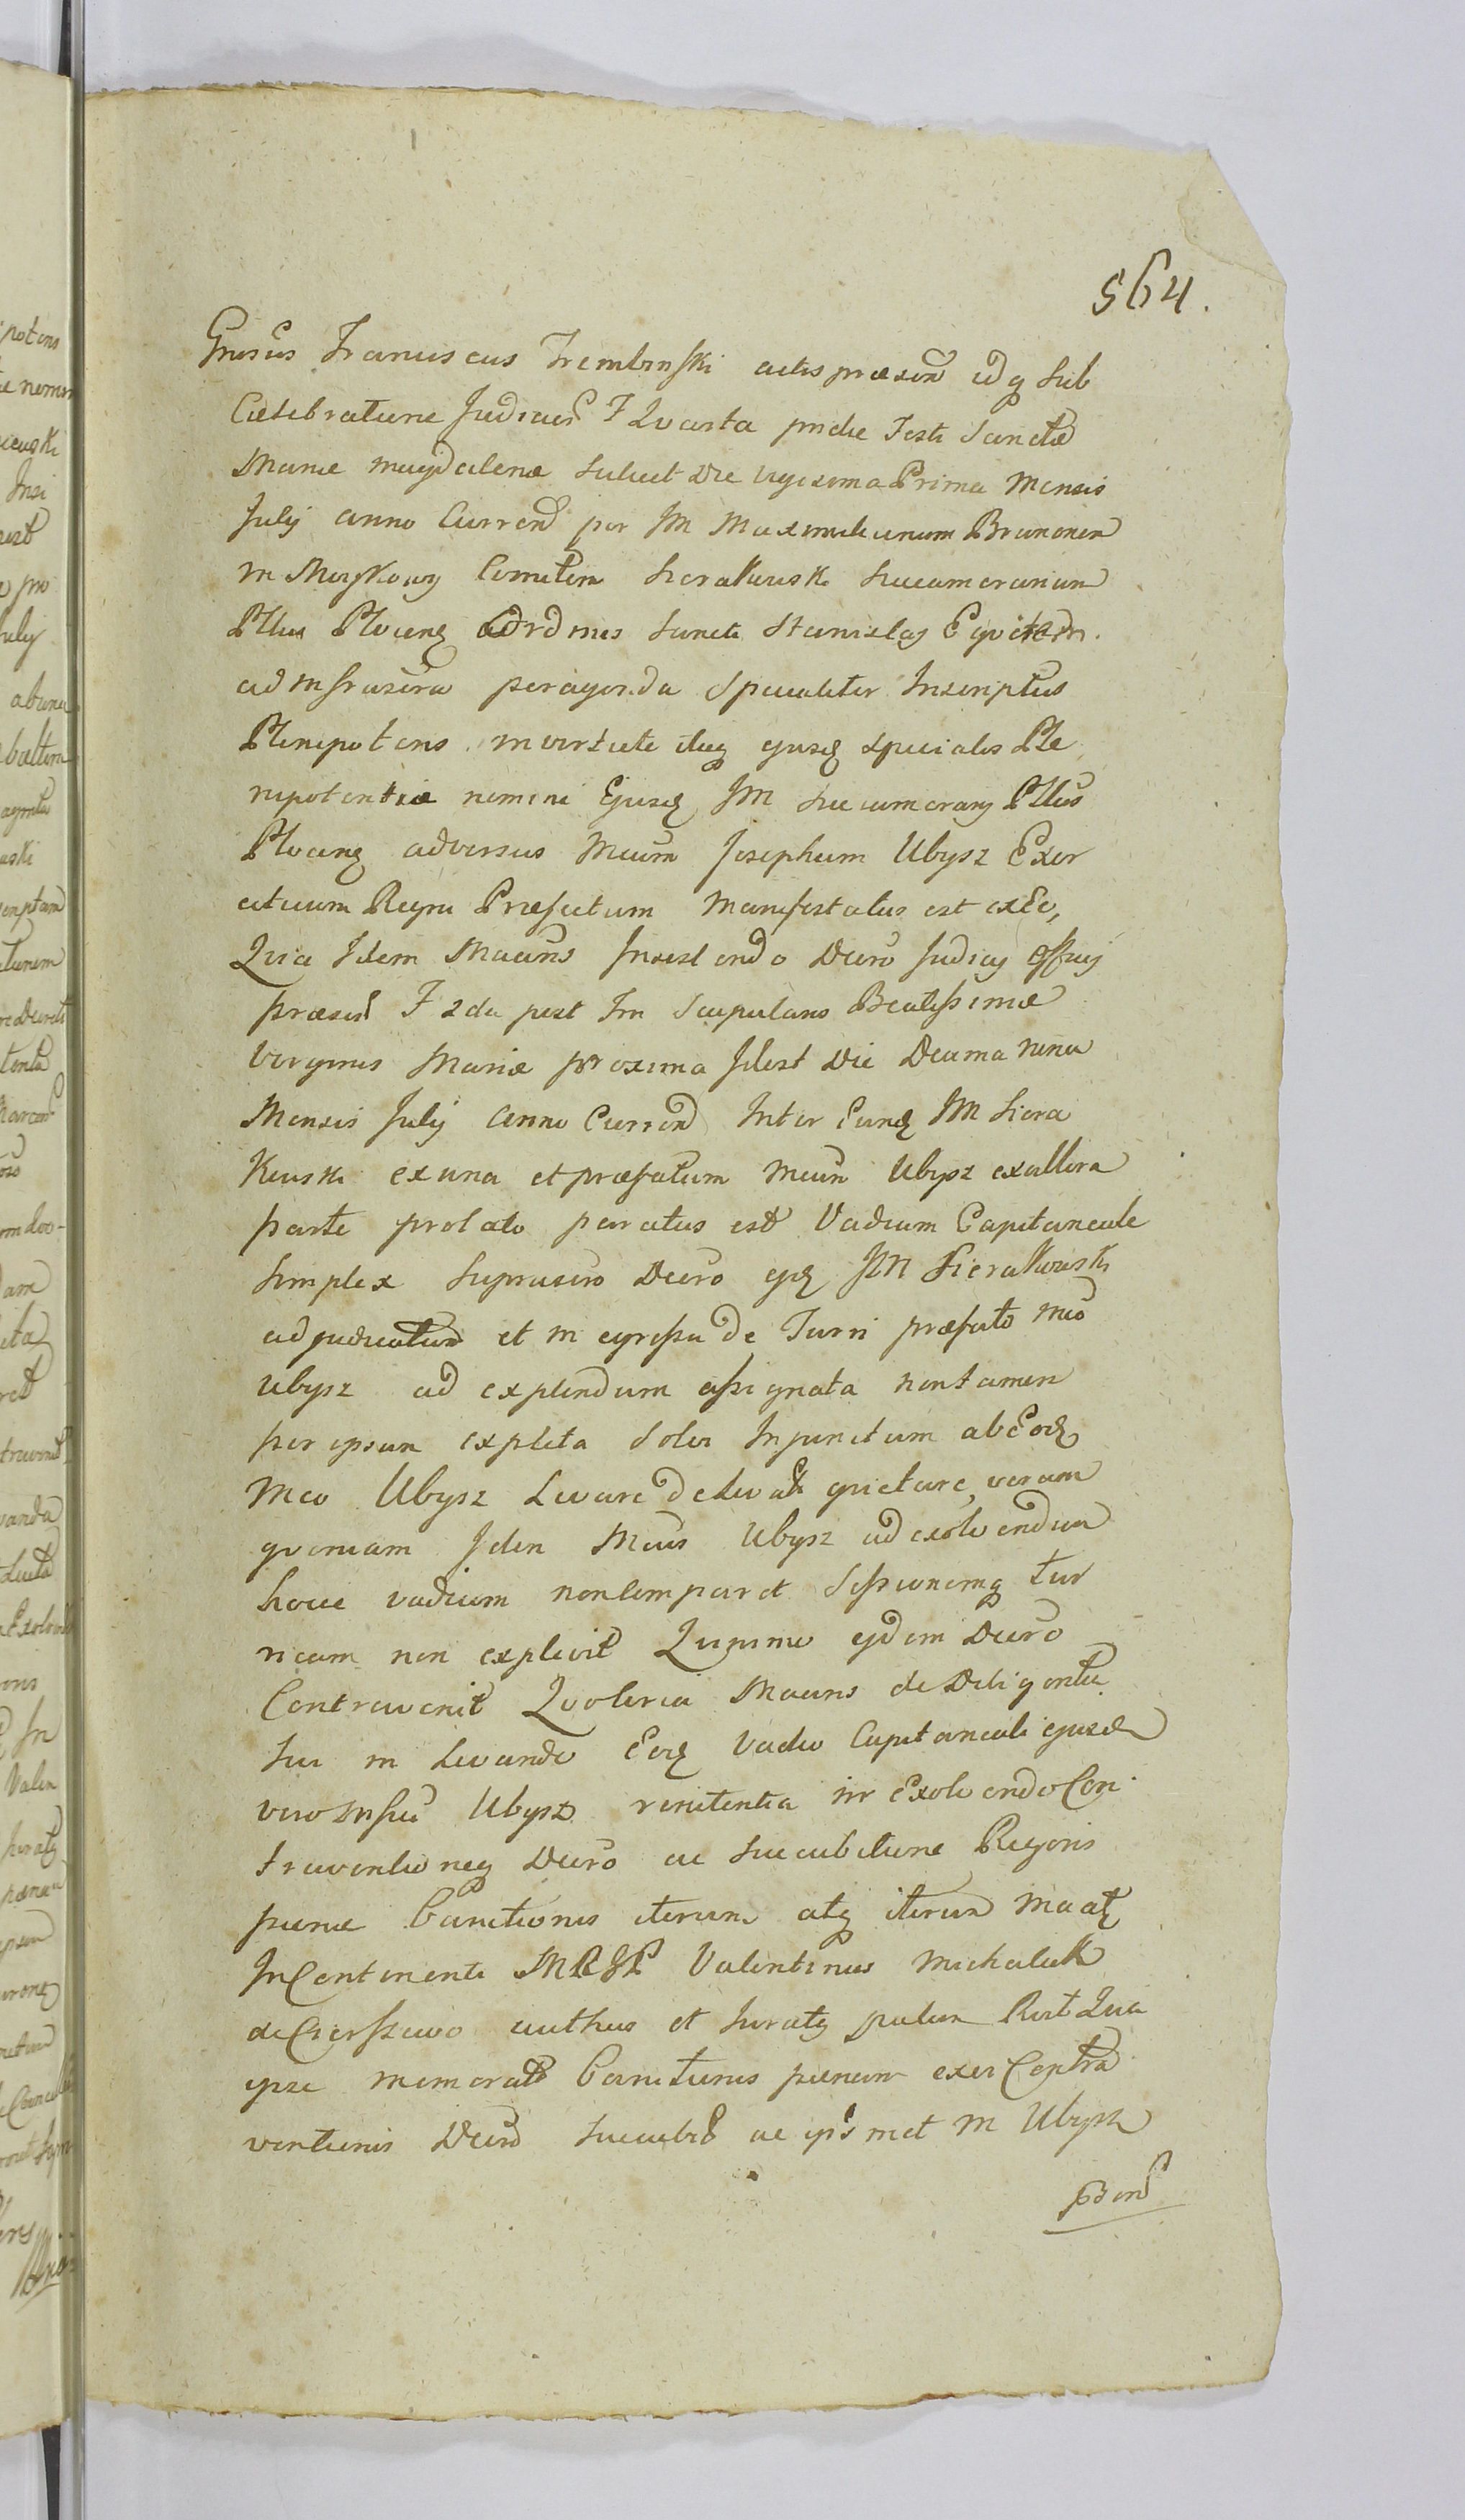 564.
Gnosus Franciscus Trembinski actis præsen idq sub
Celebratione Judicior F Quarta pridie Festi Sanctæ
Mariæ Magdalenæ Scilicet Die Vigesima Prima Mensis
July anno Curren per JM Maximilianum Brunonem
in Comitem Sierakowski Succamerarium
Pttus Plocens Ordinis Sancti Stanislay Equitem.
ad infrascra peragenda Specialiter Inscriptus
Plenipotens in virtute itaq ejusd specialis Ple
nipotentiæ nomine Ejusd JM Succamerary Pttus
Plocens adversus Mcum Josephum Ubysz Exer
cituum Regni Præfectum Manifestatus est ex Eo,
Quia Idem Maeus Insistendo Decro Judicy
præsen F 2da post Fm Scapularis Beatissimæ
Virginis Mariæ proxima Idest Die Decima nona
Mensis July Anno Curren Inter Eund JM Siera
kowski ex una et præfatum Mcum Ubysz ex altera
parte prolato paratus est Vadium Capitaneale
simplex suprascro Decro ejd JM Sierakowski
adjudicatum et in egressu De Turri præfato Mco
Ubysz ad explendum assignata non tamen
per ipsum expleta Solvi Injunctum ab Eod
Mco Ubysz Levare quietare, verum
quoniam Idem Mcus Ubysz ad exolvendum
hocce vadium non comparet Sessionemq tur
ricam non explevit Quinimo ejdem Decro
Contravenit Quoliria Maeus de Diligentia
sui in Levando Eod Vadio Capitaneali ejusd
vero Ubysz renitentia in Exolvendo Con
traventioneq Decro ac Succubitione Rigoris
pœnæ Banitionis iterum atq iterum
In Continenti Valentinus Michalak
de authus et Juratq palam Rect Quia
ipse memorat Banitionis pœnam ex Contra
ventionis Decro ac met M Ubysz